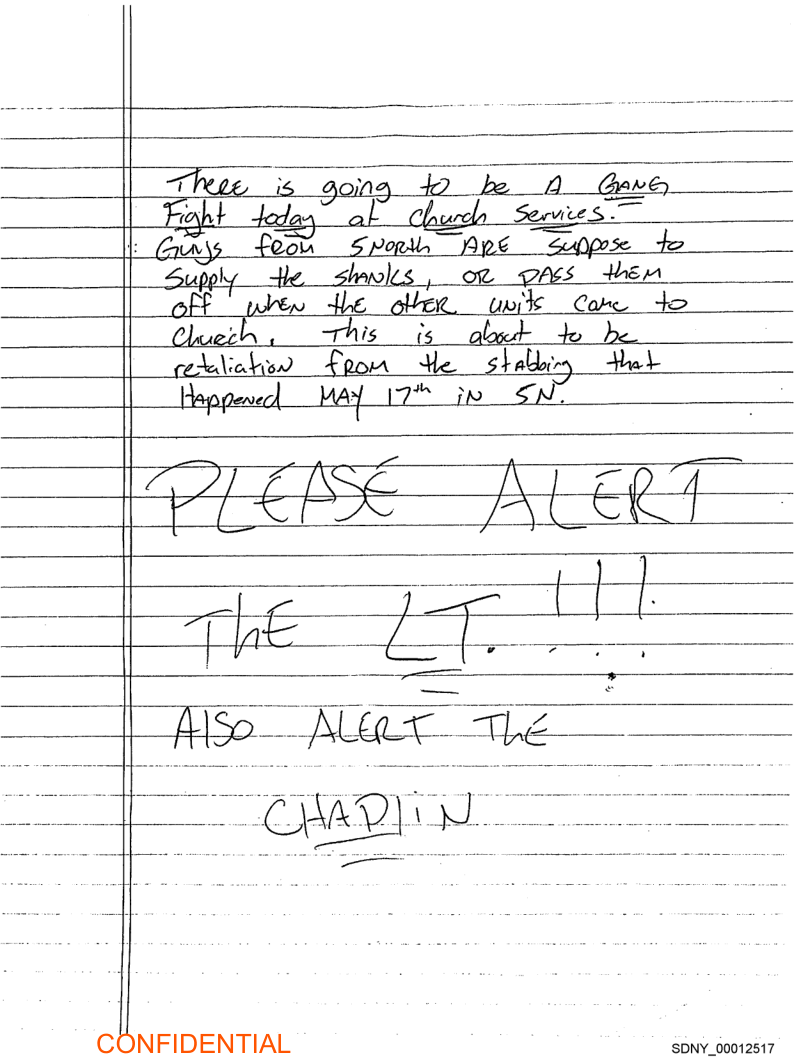 There is going to be A GANG
Fight today at church services.
Guys from 5 North ARE suppose to
supply the shanks, OR PASS them
off when the other units come to
church. This is about to be
retaliation from the stabbing that
Happened MAY 17th iN 5N.
PLEASE ALERT
ThE LT. !!!
AlSO ALERT ThE
CHAPliN
CONFIDENTIAL
SDNY_00012517